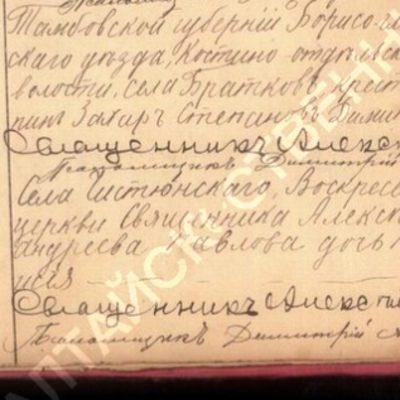 Псаломщикъ
Тамбовской губернiи Борисо-гл
скаго уѣзда, Костино-отдѣльск
волости, села Братковъ, крест
нинъ Захаръ Степановъ Дими
Священникъ Алекс
Псаломщикъ Димитрiй
Села Систюнскаго, Воскресе
церкви Священника Алекс
андреева Павлова дочь
исiя
Священникъ Алекс
Псаломщикъ Димитрiй А
АЛТАЙСК СТВЕНН